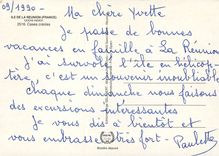 09/1990 -
Ma chère Yvette
ILE DE LA REUNION (FRANCE)
Je passe de bonnes
vacances en famille à La Réunion
j'ai survolé l'île en hélicop-
tère, c'est un souvenir inoubliable
chaque dimanche nous faisons
des excursions intéressantes
je vous dis à bientôt et vous
embrasse très fort - Paulette